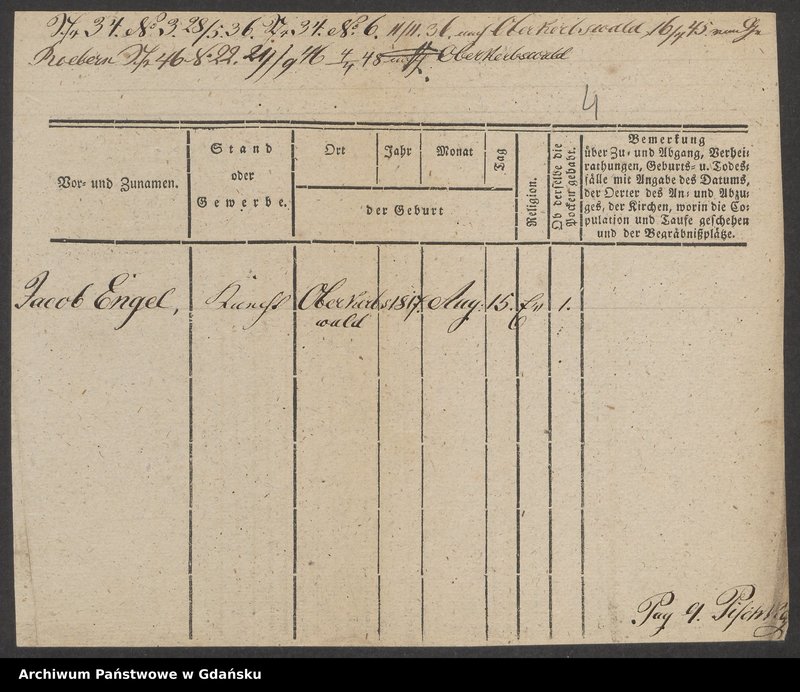 34. No 3. 28/5. 36. 34. No 6. 11/11. 36. nach Oberkerbswald 16/4 45
Roebern 46 No 22. 24/9 46 4/4 48 Oberkerbswald
4
Vor- und Zunamen.
Stand
oder
Gewerbe.
Ort
Jahr
Monat
Tag
der Geburt
Religion.
Ob derselbe die
Pocken gehabt.
Bemerkung
über Zu- und Abgang, Verhei-
rathungen, Geburts- u. Todes-
fälle mit Angabe des Datums,
der Oerter des An- und Abzu-
ges, der Kirchen, worin die Co-
pulation und Taufe geschehen
und der Begräbnißplätze.
Jacob Engel, Knecht Oberkerbs 1817. Aug. 15. Ev 1.
wald
Pag 9.
Archiwum Państwowe w Gdańsku